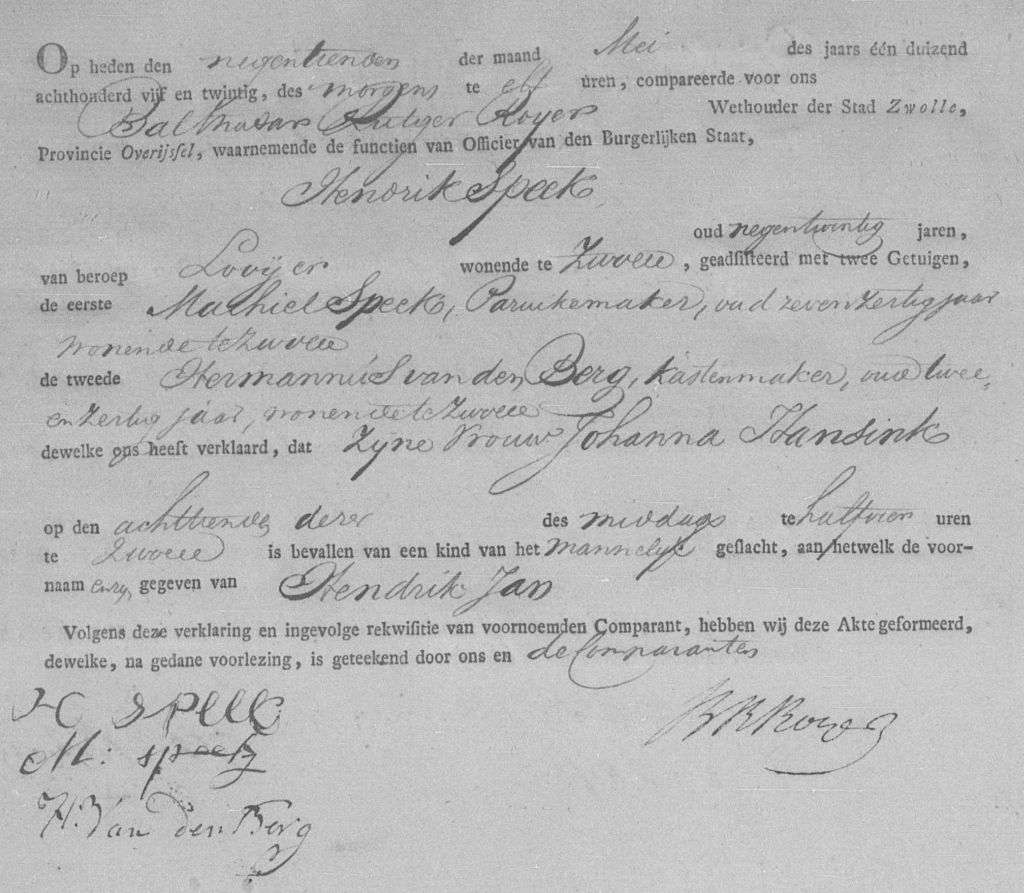 Op heden den negentienden der maand Mei des jaars één duizend
achthonderd vijf en twintig, des morgens te elf uren, compareerde voor ons
Balthasar Rutger Royer Wethouder der Stad Zwolle,
Provincie Overijssel, waarnemende de functien van Officier van den Burgerlijken Staat,
Hendrik Speek,
oud negentwintig jaren,
van beroep Looijer wonende te Zwolle, geadsisteerd met twee Getuigen,
de eerste Machiel Speek, Paruikemaker, oud zevenzertig jaar
wonende te Zwolle
de tweede Hermannus van den Berg, kastenmaker, oud twee
en zertig jaar, wonende te Zwolle
dewelke ons heeft verklaard, dat zyne Vrouw Johanna Hansink
op den achttiende dezer des middags te half vier uren
te Zwolle is bevallen van een kind van het mannelyk geslacht, aan hetwelk de voor-
naam en zy gegeven van Hendrik Jan
Volgens deze verklaring en ingevolge rekwisitie van voornoemden Comparant, hebben wij deze Akte geformeerd,
dewelke, na gedane voorlezing, is geteekend door ons en de Comparanten
H SPEEK
BRRoyer
M: speek
H: Van den Berg